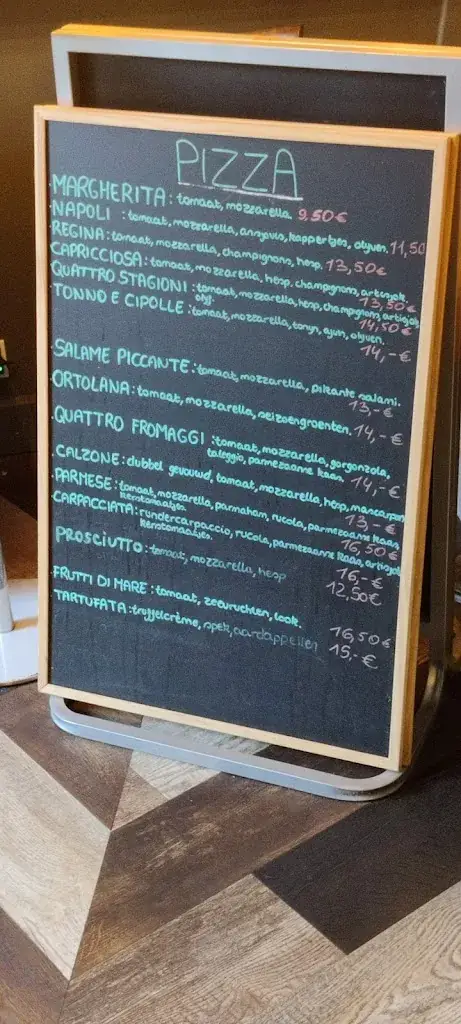 PIZZA
MARGHERITA: tomaat, mozzarella. 9.50€
NAPOLI : tomaat, mozzarella, ansjovis, kappertjes, olijven. 11,50
REGINA: tomaat, mozzarella, champignons, hesp. 13,50€
CAPRICCIOSA: tomaat, mozzarella, hesp, champignons, artisjok. 13,50€
QUATTRO STAGIONI : tomaat, mozzarella, hesp, champignons, artisjok
olijf. 14,50€
TONNO E CIPOLLE : tomaat, mozzarella, tonijn, ajuin, olijven. 14,-€
SALAME PICCANTE: tomaat, mozzarella, pikante salami. 13,-€
ORTOLANA: tomaat, mozzarella, seizoengroenten. 14,-€
QUATTRO FROMAGGI : tomaat, mozzarella, gorgonzola,
taleggio, parmezaanse kaas. 14,-€
CALZONE: dubbel gevouwd, tomaat, mozzarella, hesp, mascarpon 13,-€
PARMESE: tomaat, mozzarella, parmaham, rucola, parmezaanse kaas,
kerstomaatjes. 16,50€
CARPACCIATA: rundercarpaccio, rucola, parmezaanse kaas, artisjok
kerstomaatjes. 16,-€
PROSCIUTTO: tomaat, mozzarella, hesp 12,50€
FRUTTI DI MARE: tomaat, zeevruchten, look. 16,50€
TARTUFATA: truffelcrème, spek, aardappelen 15,-€